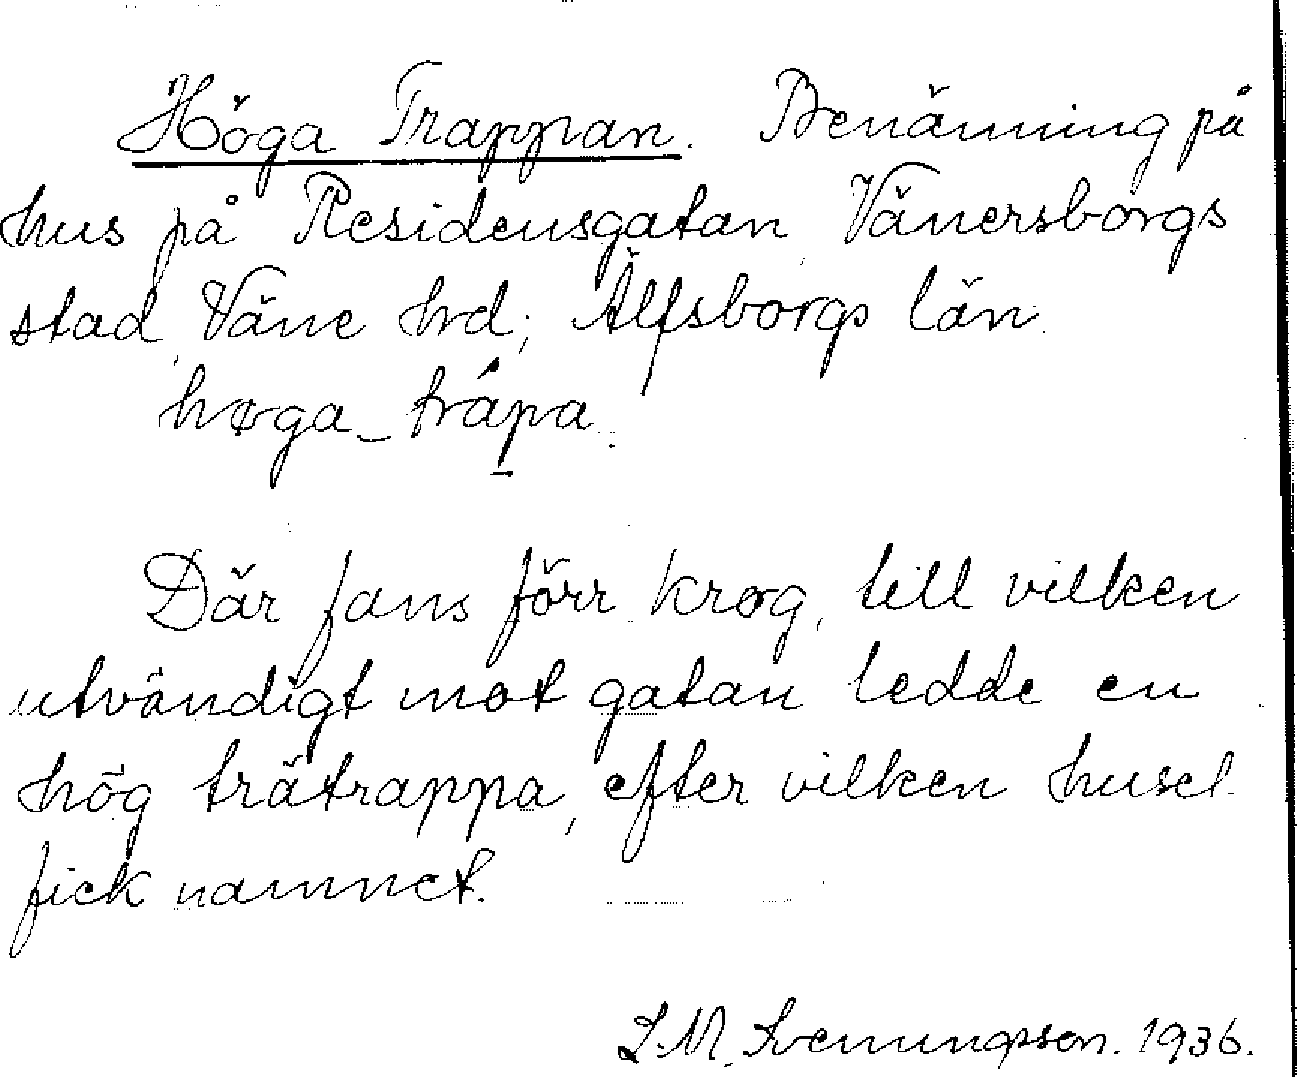 Höga Trappan. Benämning på
hus på Residensgatan Vänersborgs
stad, Väne hrd; Älfsborgs län.
høga_trápa.
Där fans förr krog, till vilken
utvändigt mot gatan ledde en
hög trätrappa, efter vilken huset
fick namnet.
L.M. Svenungsson. 1936.